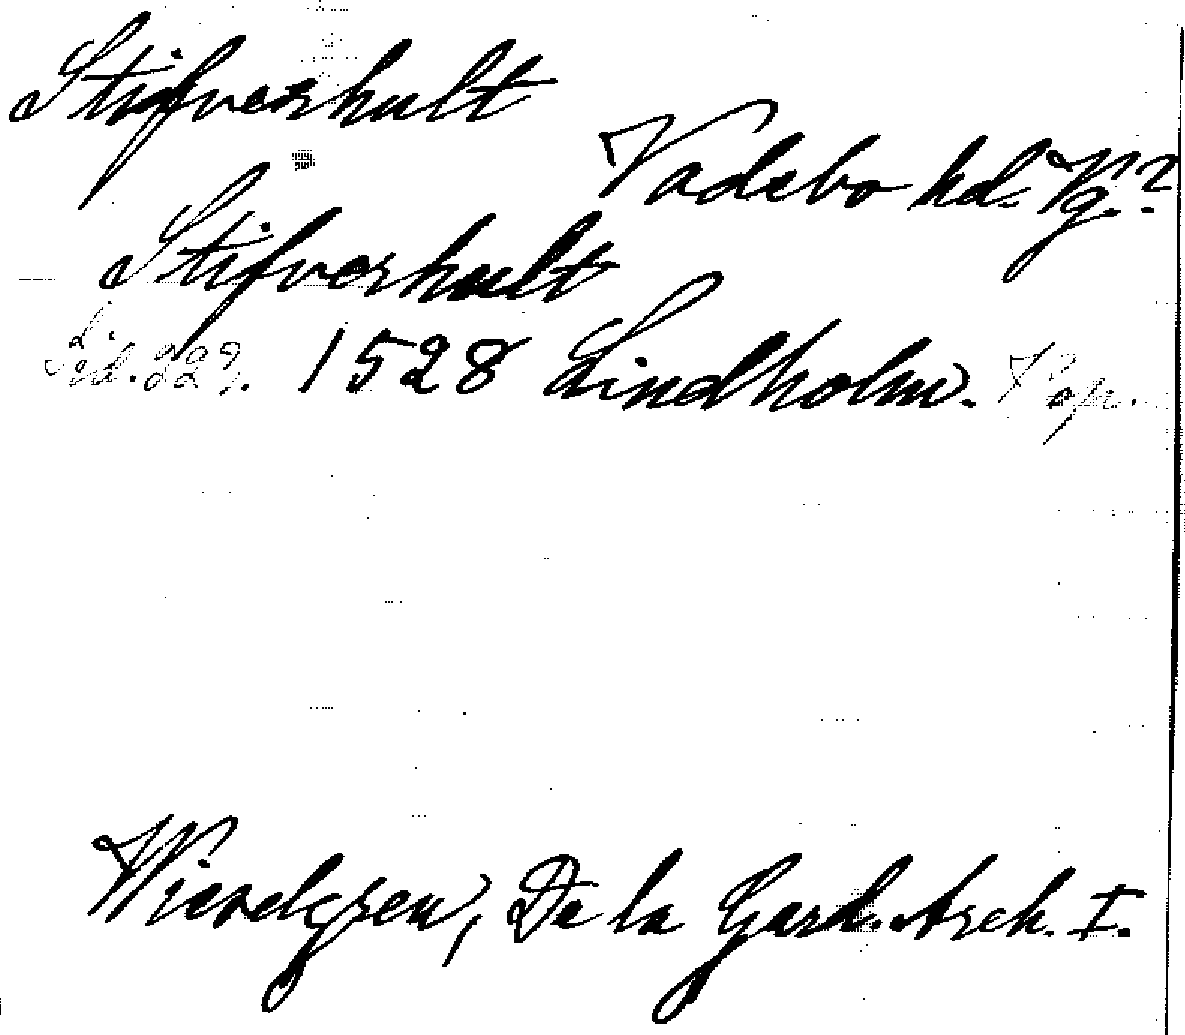 Stifverhult
Vadsbo hd. Vg.?
Stifverhult
Sid. 229. 1528 Lindholm. Pap.
Wieselgren, De la Gard. Arch. I.